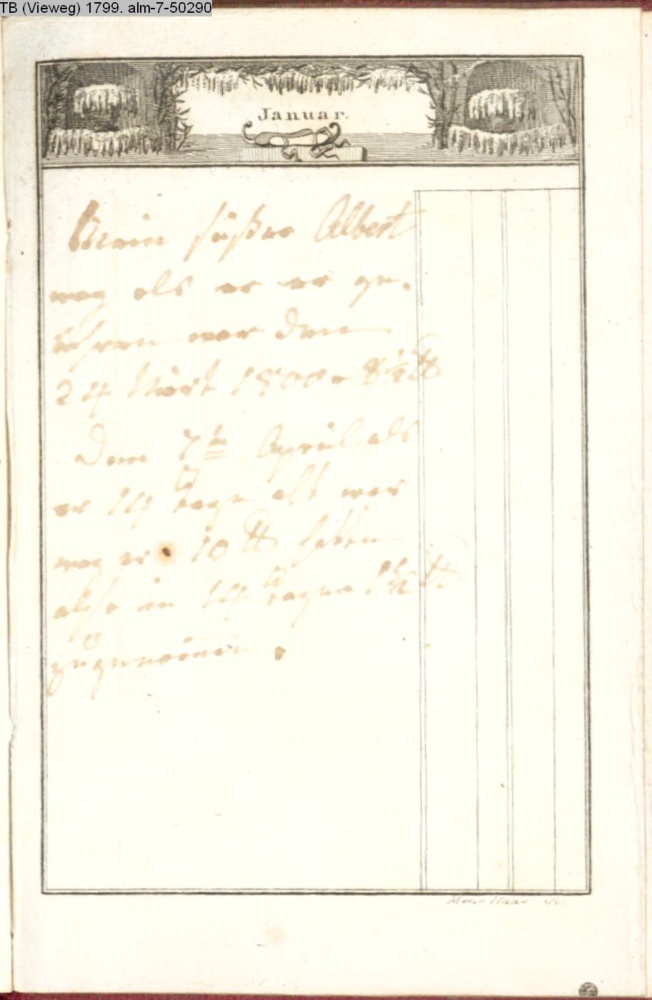 TB (Vieweg) 1799. alm-7-50290
Januar.
Mein süßer Albert
wog als er er ge-
bohren war den
24 Märt 1800 8½ ℔
Den 7ten Aprill als
er 14 tage alt war
wog er 10 ℔ hatte
also in 14 tagen 1½ ℔
zugenomen.